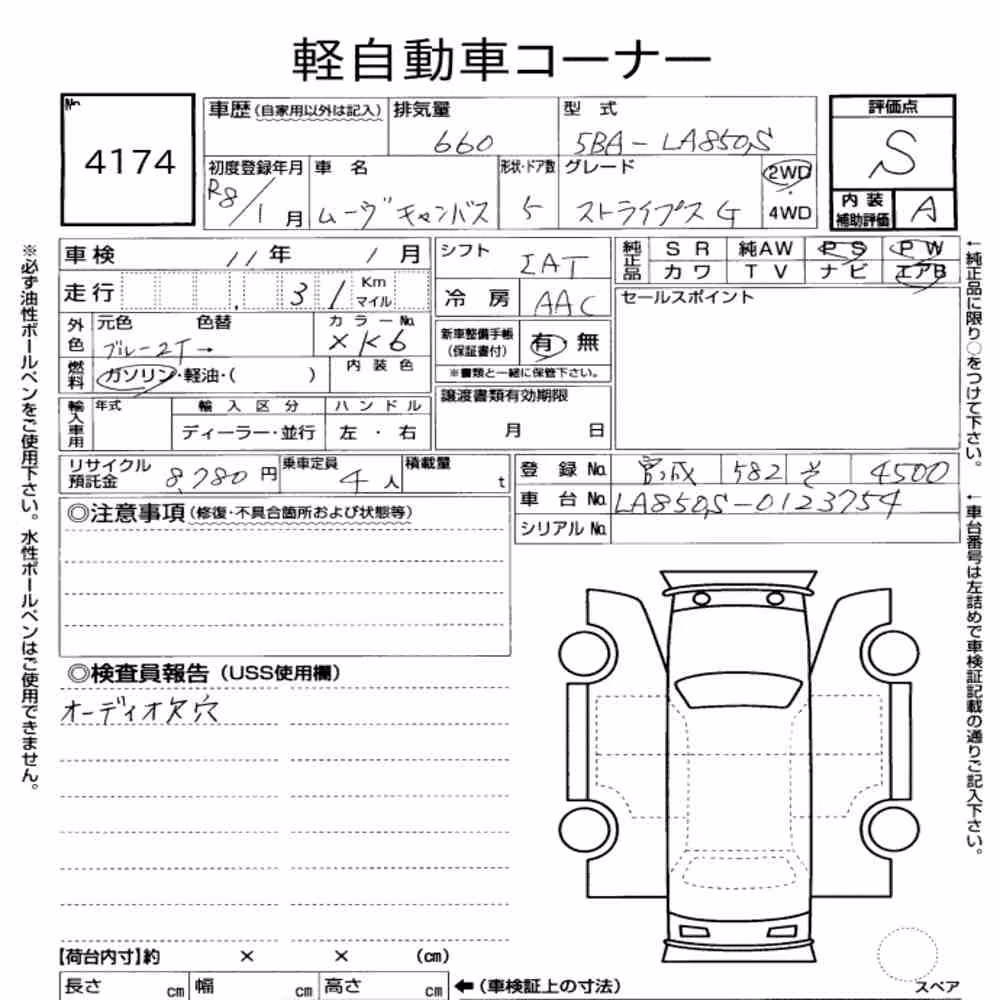 軽自動車コーナー
No.
4174
車歴(自家用以外は記入)
排気量
660
型式
5BA-LA850S
初度登録年月
R8/1月
車名
ムーヴキャンバス
形状・ドア数
5
グレード
ストライプス G
2WD
・
4WD
評価点
S
内装
補助評価
A
車検 11年 1月
走行 31 Km
マイル
シフト
IAT
冷房
AAC
純正品
SR 純AW PS PW
カワ TV ナビ エアB
外色
元色 色替
ブルー2T→
カラーNo.
XK6
燃料
ガソリン・軽油・( )
内装色
新車整備手帳
(保証書付)
有・無
※書類と一緒に保管下さい。
セールスポイント
輸入車用
年式
輸入区分
ディーラー・並行
ハンドル
左・右
譲渡書類有効期限
月 日
リサイクル
預託金
8,780円
乗車定員
4人
積載量
t
登録No. 582 4500
車台No. LA850S-0123754
シリアルNo.
◎注意事項(修復・不具合箇所および状態等)
◎検査員報告(USS使用欄)
オーディオ欠穴
【荷台内寸】約 × × (cm)
長さ cm 幅 cm 高さ cm
←(車検証上の寸法)
スペア
※必ず油性ボールペンをご使用下さい。水性ボールペンはご使用できません。
←純正品に限り○をつけて下さい。
←車台番号は左詰めで車検証記載の通りご記入下さい。